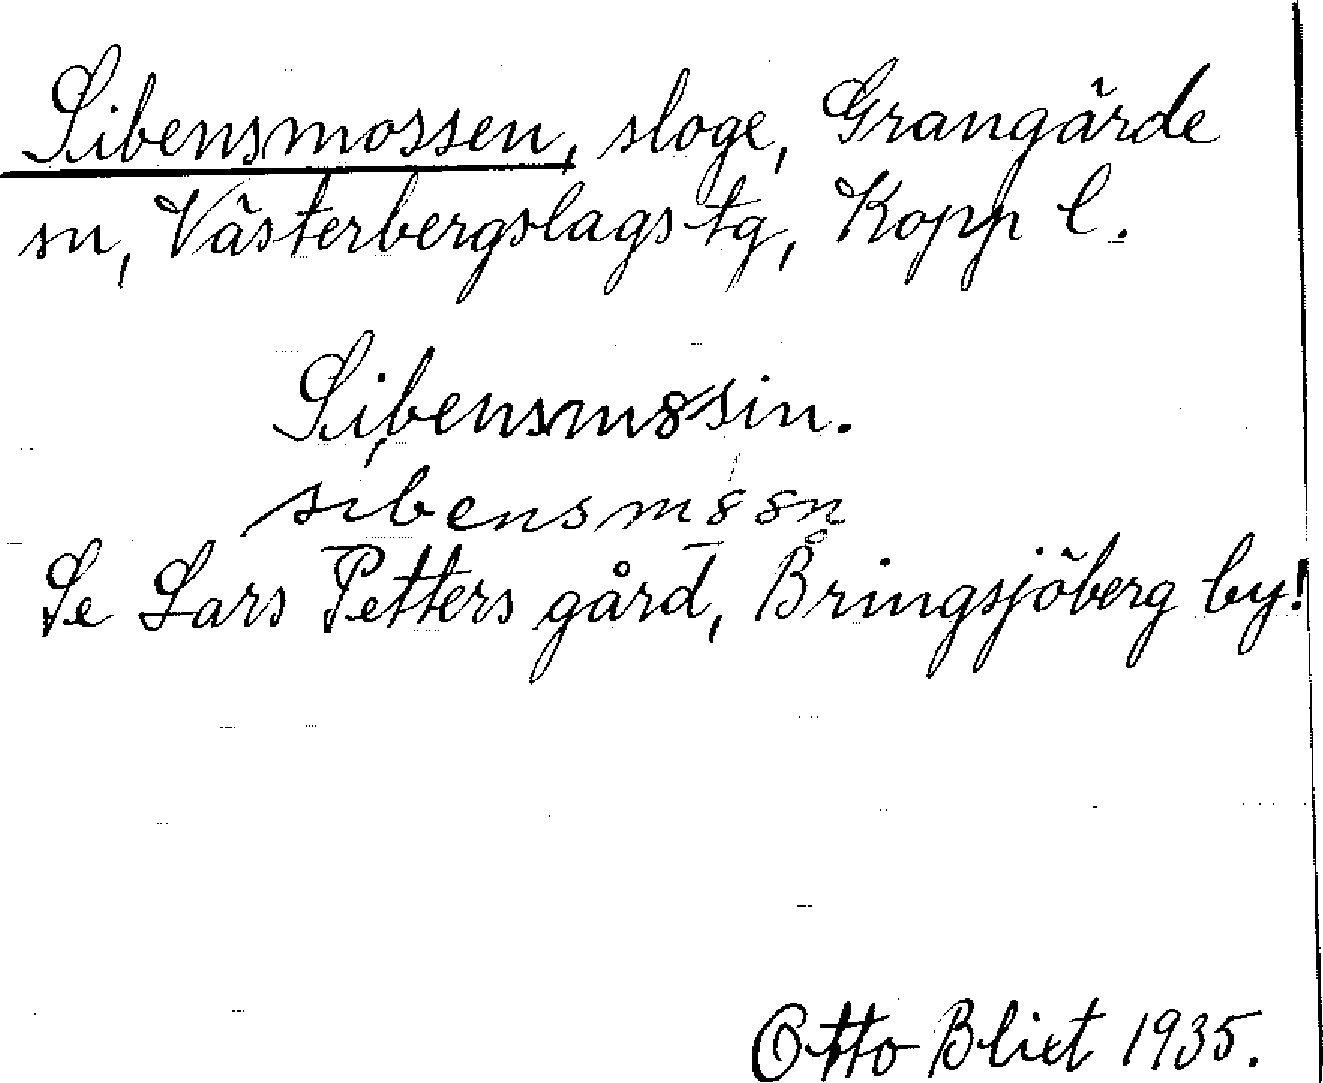 Sibensmossen, sloge, Grangärde
sn, Västerbergslags tg, Kopp l.
Sibensm8sin.
sibensm8sn
Se Lars Petters gård, Bringsjöberg by!
Otto Blixt 1935.